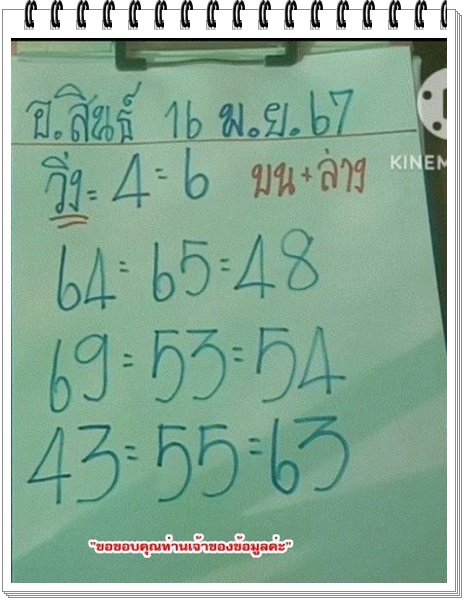 อ.สินธ์ 16 พ.ย.67
วิ่ง = 4 = 6 บน + ล่าง
KINEM
64 = 65 = 48
69 = 53 = 54
43 = 55 = 63
"ขอขอบคุณท่านเจ้าของข้อมูลค่ะ"